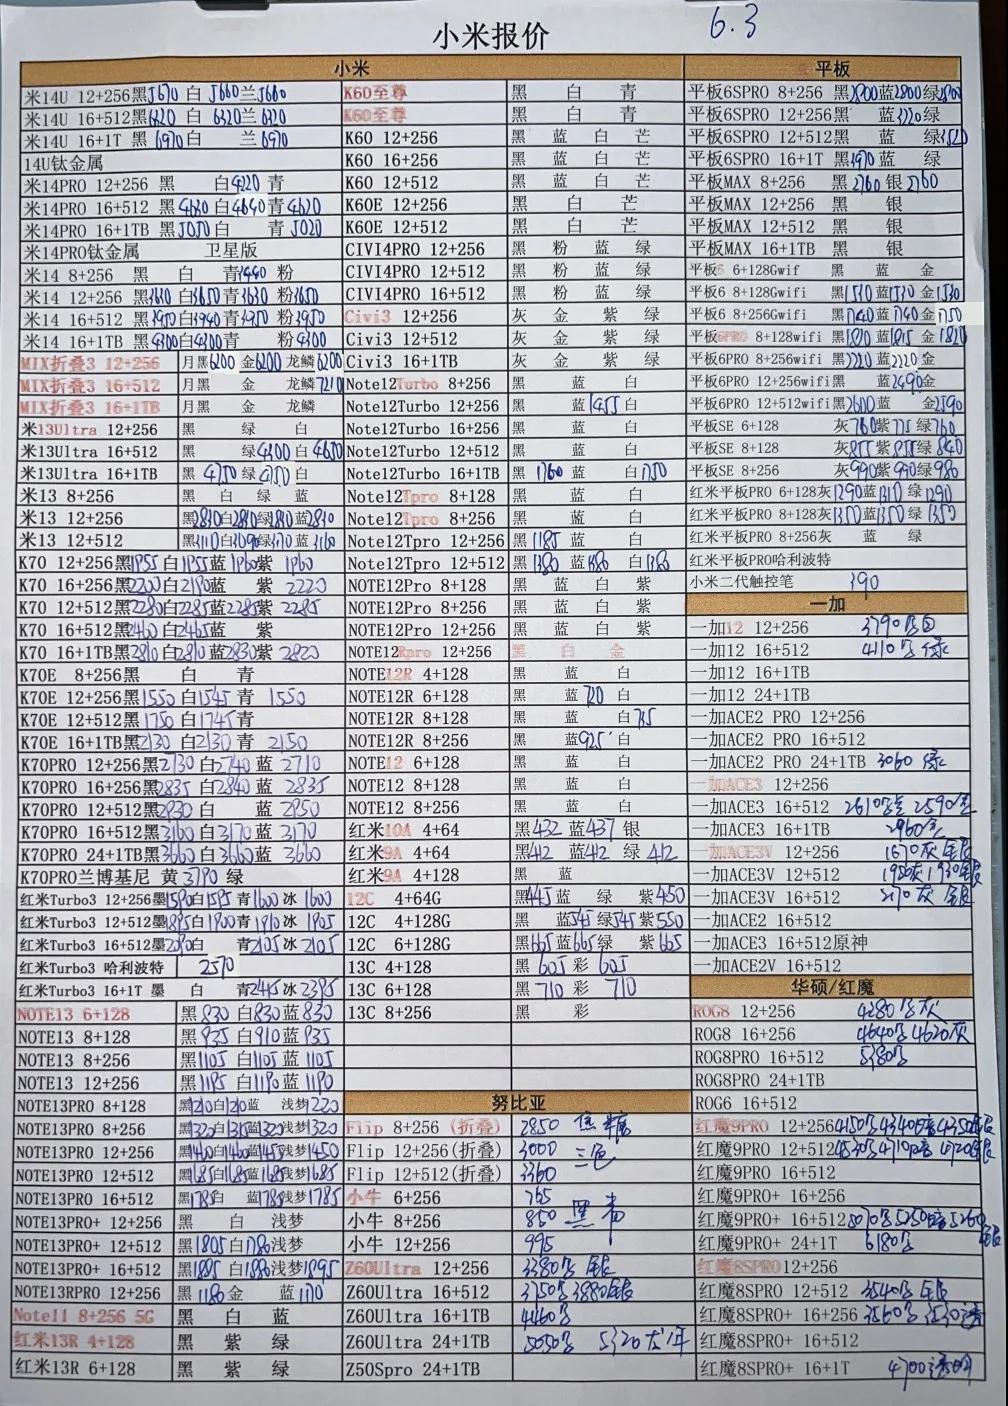 小米报价 6.3
小米
米14U 12+256黑5670 白 5660兰5660
米14U 16+512黑6320 白 6320兰6320
米14U 16+1T 黑 6970白 兰 6970
14U钛金属
米14PRO 12+256 黑 白4220 青
米14PRO 16+512 黑4630 白4640青4620
米14PRO 16+1TB 黑5050 白 青5020
米14PRO钛金属 卫星版
米14 8+256 黑 白 青3440 粉
米14 12+256 黑3610 白3650青3630 粉3650
米14 16+512 黑3950白3940青3950 粉3950
米14 16+1TB 黑4300白4300青 粉4300
MIX折叠3 12+256 月黑6200 金6200 龙鳞6200
MIX折叠3 16+512 月黑 金 龙鳞7210
MIX折叠3 16+1TB 月黑 金 龙鳞
米13Ultra 12+256 黑 绿 白
米13Ultra 16+512 黑 绿4300 白4650
米13Ultra 16+1TB 黑 4750 绿4750 白
米13 8+256 黑 白 绿 蓝
米13 12+256 黑2830白2810绿2810蓝2830
米13 12+512 黑3110白3090绿3170蓝3160
K70 12+256黑1955 白1955蓝1960紫 1960
K70 16+256黑2200白2190蓝 紫 2220
K70 12+512黑2280白2285蓝2285紫 2285
K70 16+512黑2460白2465蓝 紫
K70 16+1TB黑2810白2810蓝2830紫 2820
K70E 8+256黑 白 青
K70E 12+256黑1550 白1545 青 1550
K70E 12+512黑1750 白1745青
K70E 16+1TB黑2130 白2130 青 2150
K70PRO 12+256黑2730白2740蓝 2710
K70PRO 16+256黑2835 白2840蓝 2835
K70PRO 12+512黑2930 白 蓝 2950
K70PRO 16+512黑3160 白3170蓝 3170
K70PRO 24+1TB黑3660白3660蓝 3660
K70PRO兰博基尼 黄 3790 绿
红米Turbo3 12+256墨1590白1595 青1600冰 1600
红米Turbo3 12+512墨1895白1900青1910冰 1905
红米Turbo3 16+512墨2090白 青2105冰 2105
红米Turbo3 哈利波特 2570
红米Turbo3 16+1T 墨 白 青2415冰 2395
NOTE13 6+128 黑830 白830蓝830
NOTE13 8+128 黑935 白910蓝935
NOTE13 8+256 黑1105 白1105蓝1105
NOTE13 12+256 黑1195 白1190蓝1190
NOTE13PRO 8+128 黑1210白1210蓝 浅梦1220
NOTE13PRO 8+256 黑1320白1315蓝1320浅梦1320
NOTE13PRO 12+256 黑1460白1460蓝1455浅梦1450
NOTE13PRO 12+512 黑1685白1685蓝1685浅梦1685
NOTE13PRO 16+512 黑1785白 蓝1785浅梦1785
NOTE13PRO+ 12+256 黑 白 浅梦
NOTE13PRO+ 12+512 黑1805白1780浅梦
NOTE13PRO+ 16+512 黑1885 白1880浅梦1895
NOTE13RPRO 12+256 黑1180 金 蓝1170
Note11 8+256 5G 黑 白 蓝
红米13R 4+128 黑 紫 绿
红米13R 6+128 黑 紫 绿
K60至尊 黑 白 青
K60至尊 黑 白 青
K60 12+256 黑 蓝 白 芒
K60 16+256 黑 蓝 白 芒
K60 12+512 黑 蓝 白 芒
K60E 12+256 黑 白 芒
K60E 12+512 黑 白 芒
CIVI4PRO 12+256 黑 粉 蓝 绿
CIVI4PRO 12+512 黑 粉 蓝 绿
CIVI4PRO 16+512 黑 粉 蓝 绿
Civi3 12+256 灰 金 紫 绿
Civi3 12+512 灰 金 紫 绿
Civi3 16+1TB 灰 金 紫 绿
Note12Turbo 8+256 黑 蓝 白
Note12Turbo 12+256 黑 蓝1455 白
Note12Turbo 16+256 黑 蓝 白
Note12Turbo 12+512 黑 蓝 白
Note12Turbo 16+1TB 黑 1760 蓝 白1750
Note12Tpro 8+128 黑 蓝 白
Note12Tpro 8+256 黑 蓝 白
Note12Tpro 12+256 黑1185 蓝 白
Note12Tpro 12+512 黑1380 蓝1386 白1386
NOTE12Pro 8+128 黑 蓝 白 紫
NOTE12Pro 8+256 黑 蓝 白 紫
NOTE12Pro 12+256 黑 蓝 白 紫
NOTE12Rpro 12+256 黑 白 金
NOTE12R 4+128 黑 蓝 白
NOTE12R 6+128 黑 蓝720 白
NOTE12R 8+128 黑 蓝 白735
NOTE12R 8+256 黑 蓝925 白
NOTE12 6+128 黑 蓝 白
NOTE12 8+128 黑 蓝 白
NOTE12 8+256 黑 蓝 白
红米10A 4+64 黑432 蓝437 银
红米9A 4+64 黑412 蓝412 绿 412
红米9A 4+128 黑 蓝
12C 4+64G 黑445 蓝 绿 紫450
12C 4+128G 黑 蓝545 绿545紫550
12C 6+128G 黑665蓝665绿 紫665
13C 4+128 黑 605 彩 605
13C 6+128 黑 710 彩 710
13C 8+256 黑 彩
努比亚
Flip 8+256 (折叠) 2850 焦糖
Flip 12+256(折叠) 3000 三色
Flip 12+512(折叠) 3360
小牛 6+256 765
小牛 8+256 850 黑 青
小牛 12+256 995
Z60Ultra 12+256 3380 银
Z60Ultra 16+512 3750 3880银
Z60Ultra 16+1TB 4460
Z60Ultra 24+1TB 5050 5320
Z50Spro 24+1TB
平板
平板6SPRO 8+256 黑2800蓝2800绿2800
平板6SPRO 12+256黑 蓝3220绿
平板6SPRO 12+512黑 蓝 绿3520
平板6SPRO 16+1T 黑3970 蓝 绿
平板MAX 8+256 黑2760 银2760
平板MAX 12+256 黑 银
平板MAX 12+512 黑 银
平板MAX 16+1TB 黑 银
平板6 6+128Gwif 黑 蓝 金
平板6 8+128Gwifi 黑1510蓝1530 金1530
平板6 8+256Gwifi 黑1740蓝1740金1750
平板6PRO 8+128wifi 黑1820蓝1815 金1820
平板6PRO 8+256wifi 黑2220蓝2220金
平板6PRO 12+256wifi黑 蓝2490金
平板6PRO 12+512wifi黑2600蓝 金2590
平板SE 6+128 灰760紫775绿760
平板SE 8+128 灰855紫855绿840
平板SE 8+256 灰990紫990绿980
红米平板PRO 6+128灰1290蓝1310绿1290
红米平板PRO 8+128灰1350蓝1350绿1350
红米平板PRO 8+256灰 蓝 绿
红米平板PRO哈利波特
小米二代触控笔 190
一加
一加12 12+256 3790黑白
一加12 16+512 4110黑绿
一加12 16+1TB
一加12 24+1TB
一加ACE2 PRO 12+256
一加ACE2 PRO 16+512
一加ACE2 PRO 24+1TB 3060 绿
一加ACE3 12+256
一加ACE3 16+512 2610 2590金
一加ACE3 16+1TB 2960
一加ACE3V 12+256 1670灰 银
一加ACE3V 12+512 1950灰1930银
一加ACE3V 16+512 2170灰 银
一加ACE2 16+512
一加ACE3 16+512原神
一加ACE2V 16+512
华硕/红魔
ROG8 12+256 4280黑灰
ROG8 16+256 4640黑4620灰
ROG8PRO 16+512 5380黑
ROG8PRO 24+1TB
ROG6 16+512
红魔9PRO 12+256 4150黑4340暗4350银
红魔9PRO 12+512 4530黑4710暗4720银
红魔9PRO 16+512
红魔9PRO+ 16+256
红魔9PRO+ 16+512 5070黑5250暗5260银
红魔9PRO+ 24+1T 6180黑
红魔8SPRO12+256
红魔8SPRO 12+512 3540黑 银
红魔8SPRO+ 16+256 3560黑 3530透
红魔8SPRO+ 16+512
红魔8SPRO+ 16+1T 4700透明